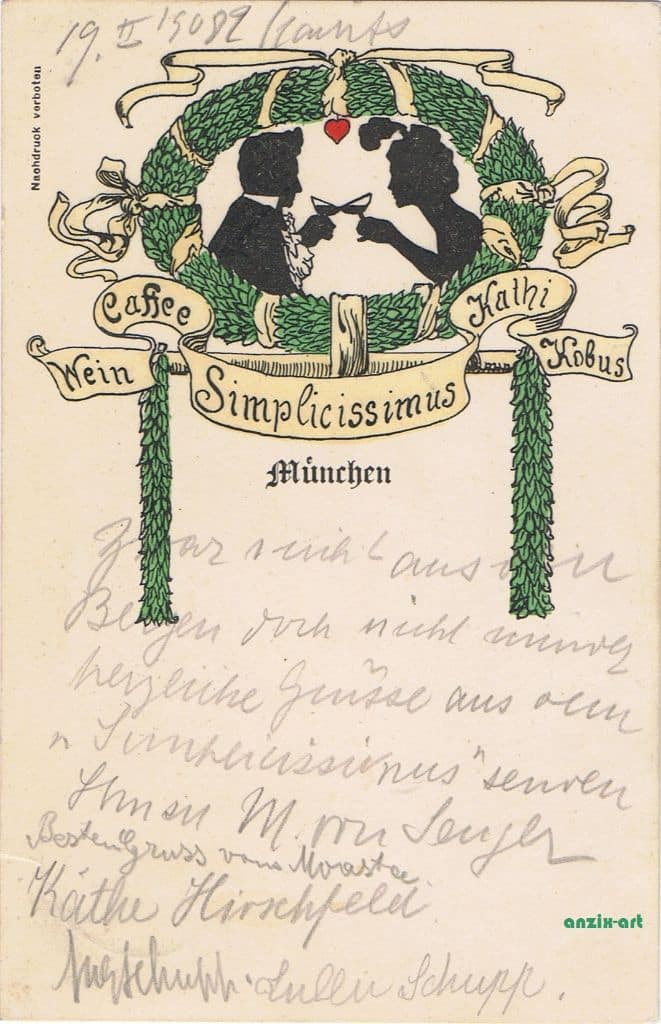 19. II 1908
Nachdruck verboten
Caffee
Kathi
Wein
Kobus
Simplicissimus
München
Zwar nicht aus den
Bergen doch nicht minder
herzliche Grüsse aus dem
"Simplicissimus" senden
Ihnen M. von
Besten Gruss vom
Käthe Hirschfeld
Schupp.
anzix-art